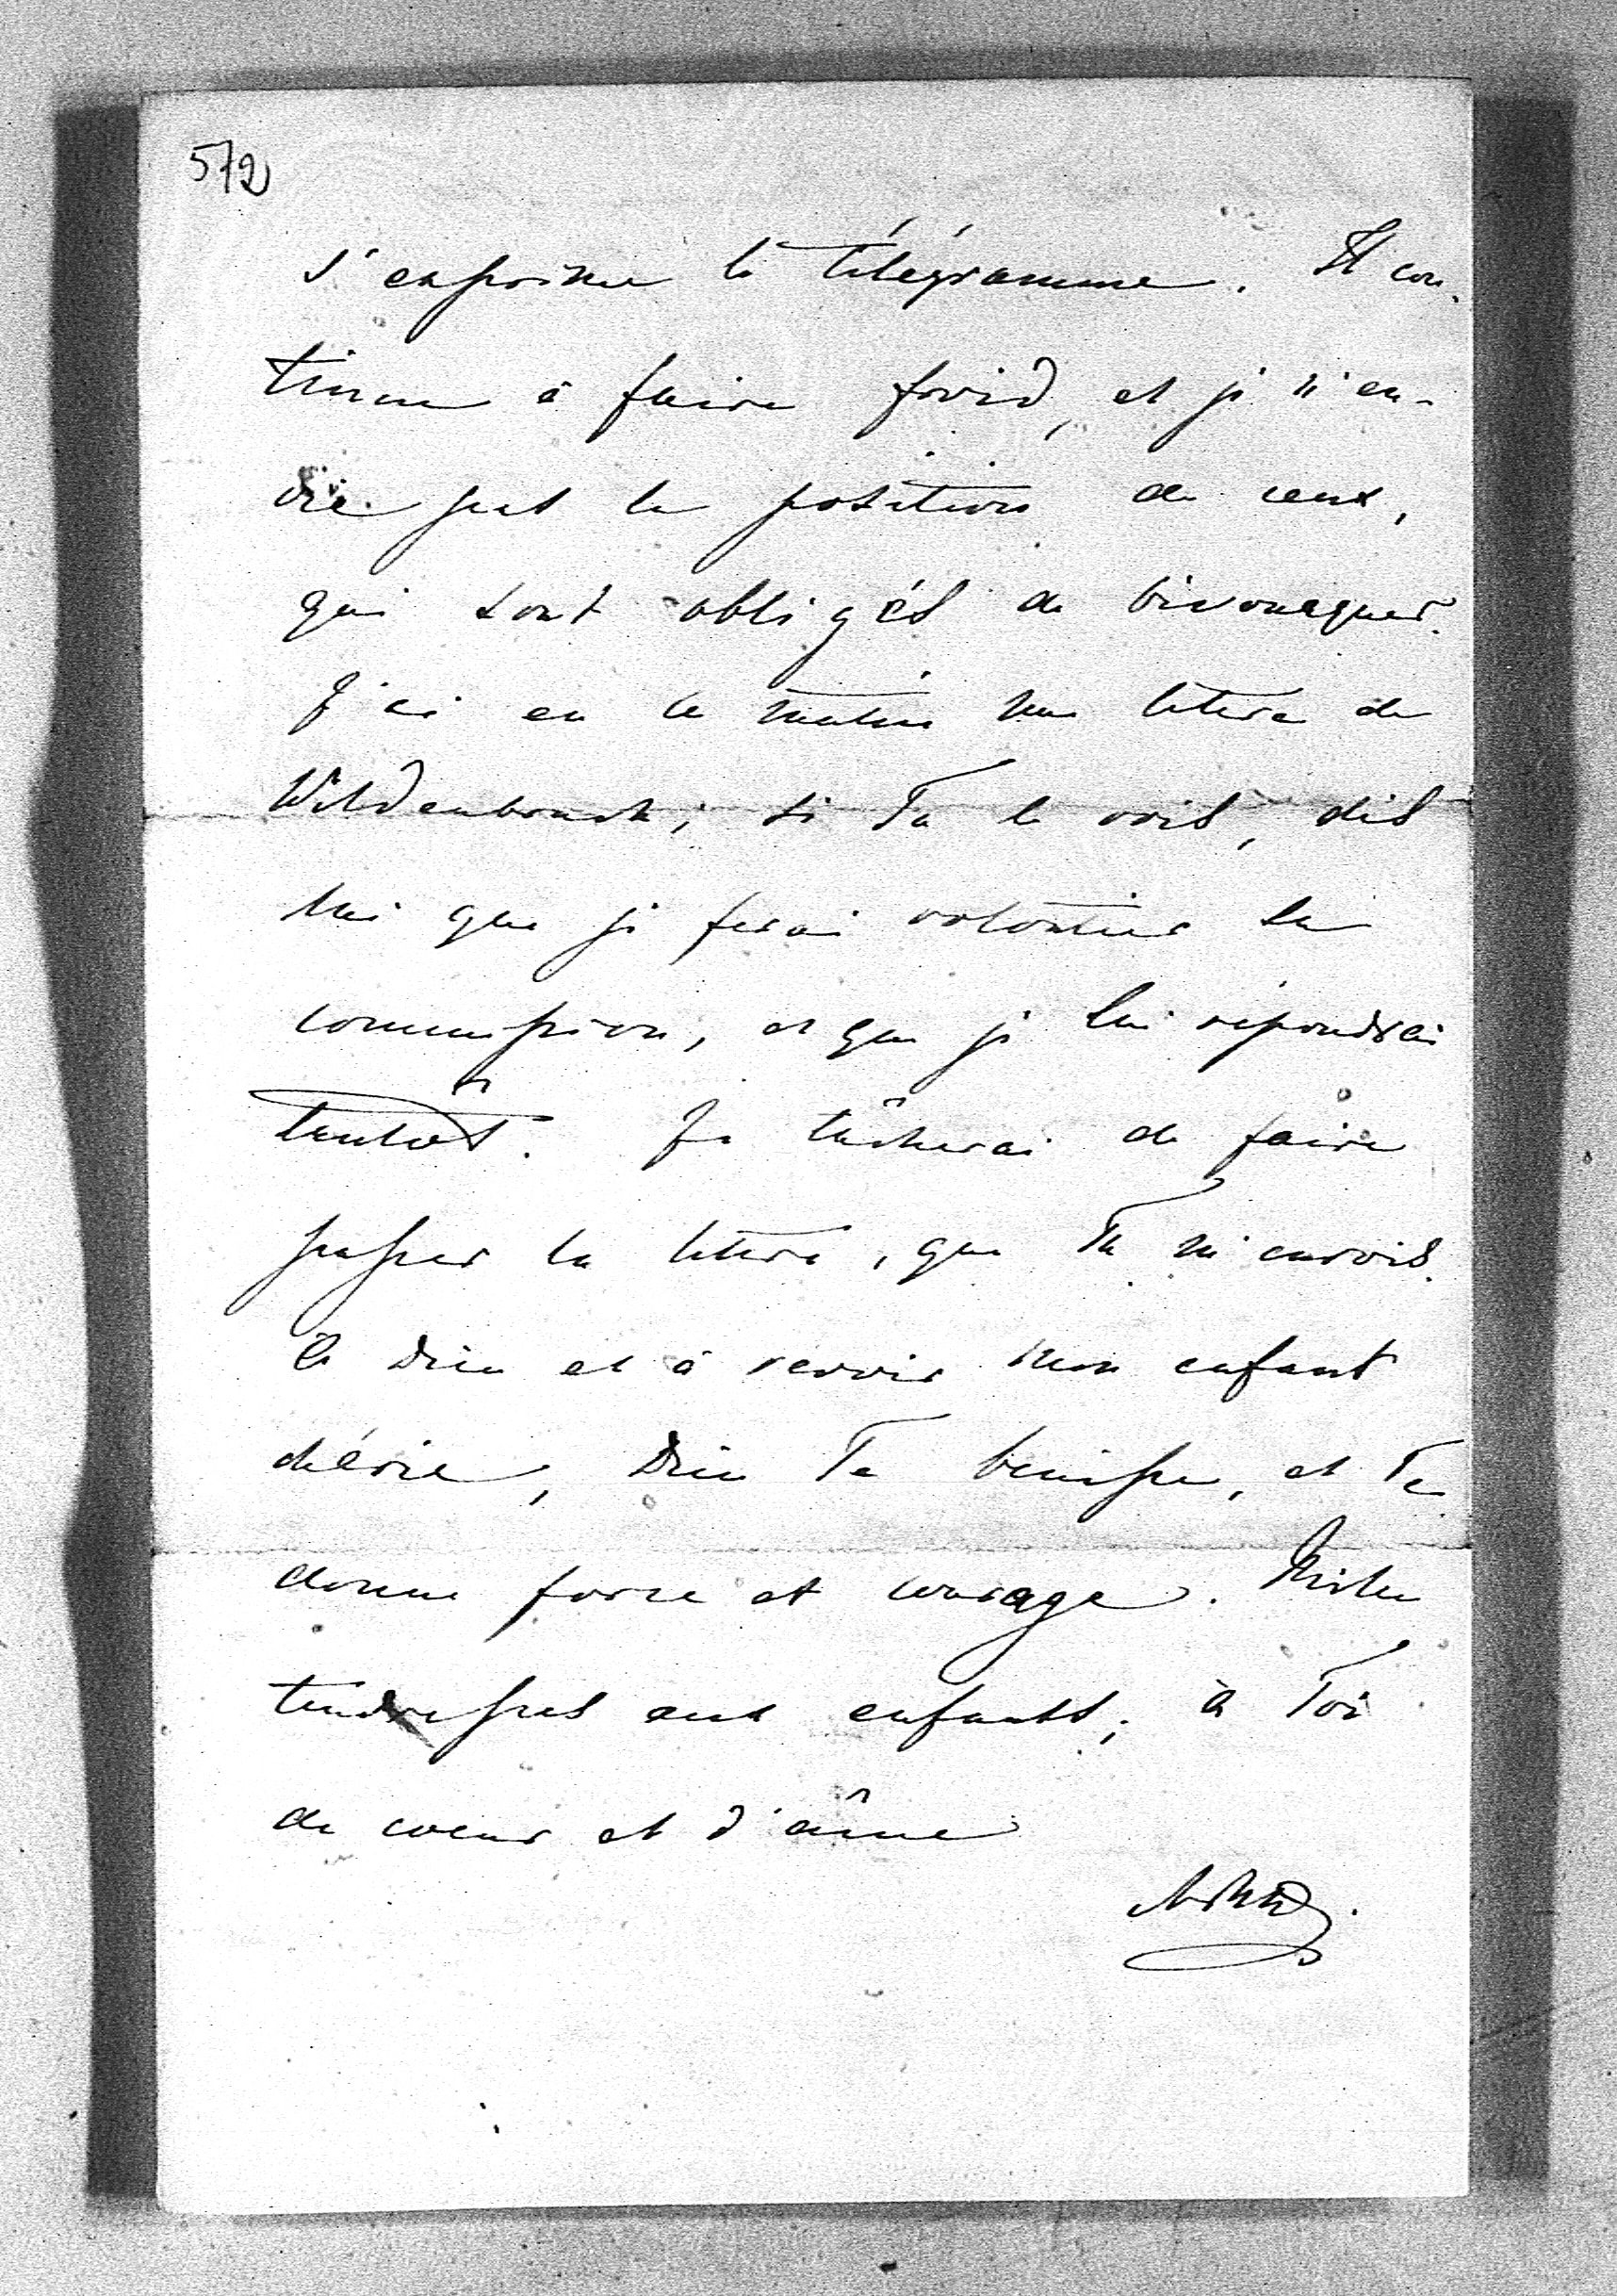 572
s'exprime le télégramme. Il con-
tinue à faire froid, et je n'en-
vie pas la position de ceux,
qui sont obligés de bivouaquer.
J'ai eu ce matin une lettre de
Wildenbruch; si Tu le vois, dis
lui que je ferai volontier sa
commission, et que je lui répondrai
tantôt. Je tâcherai de faire
passer la lettre, que Tu m'envois.
à Dieu et à revoir mon enfant
chérie, Dieu Te benisse, et Te
donne force et courage. Milles
tendresses aux enfants; à Toi
de coeur et d'âme